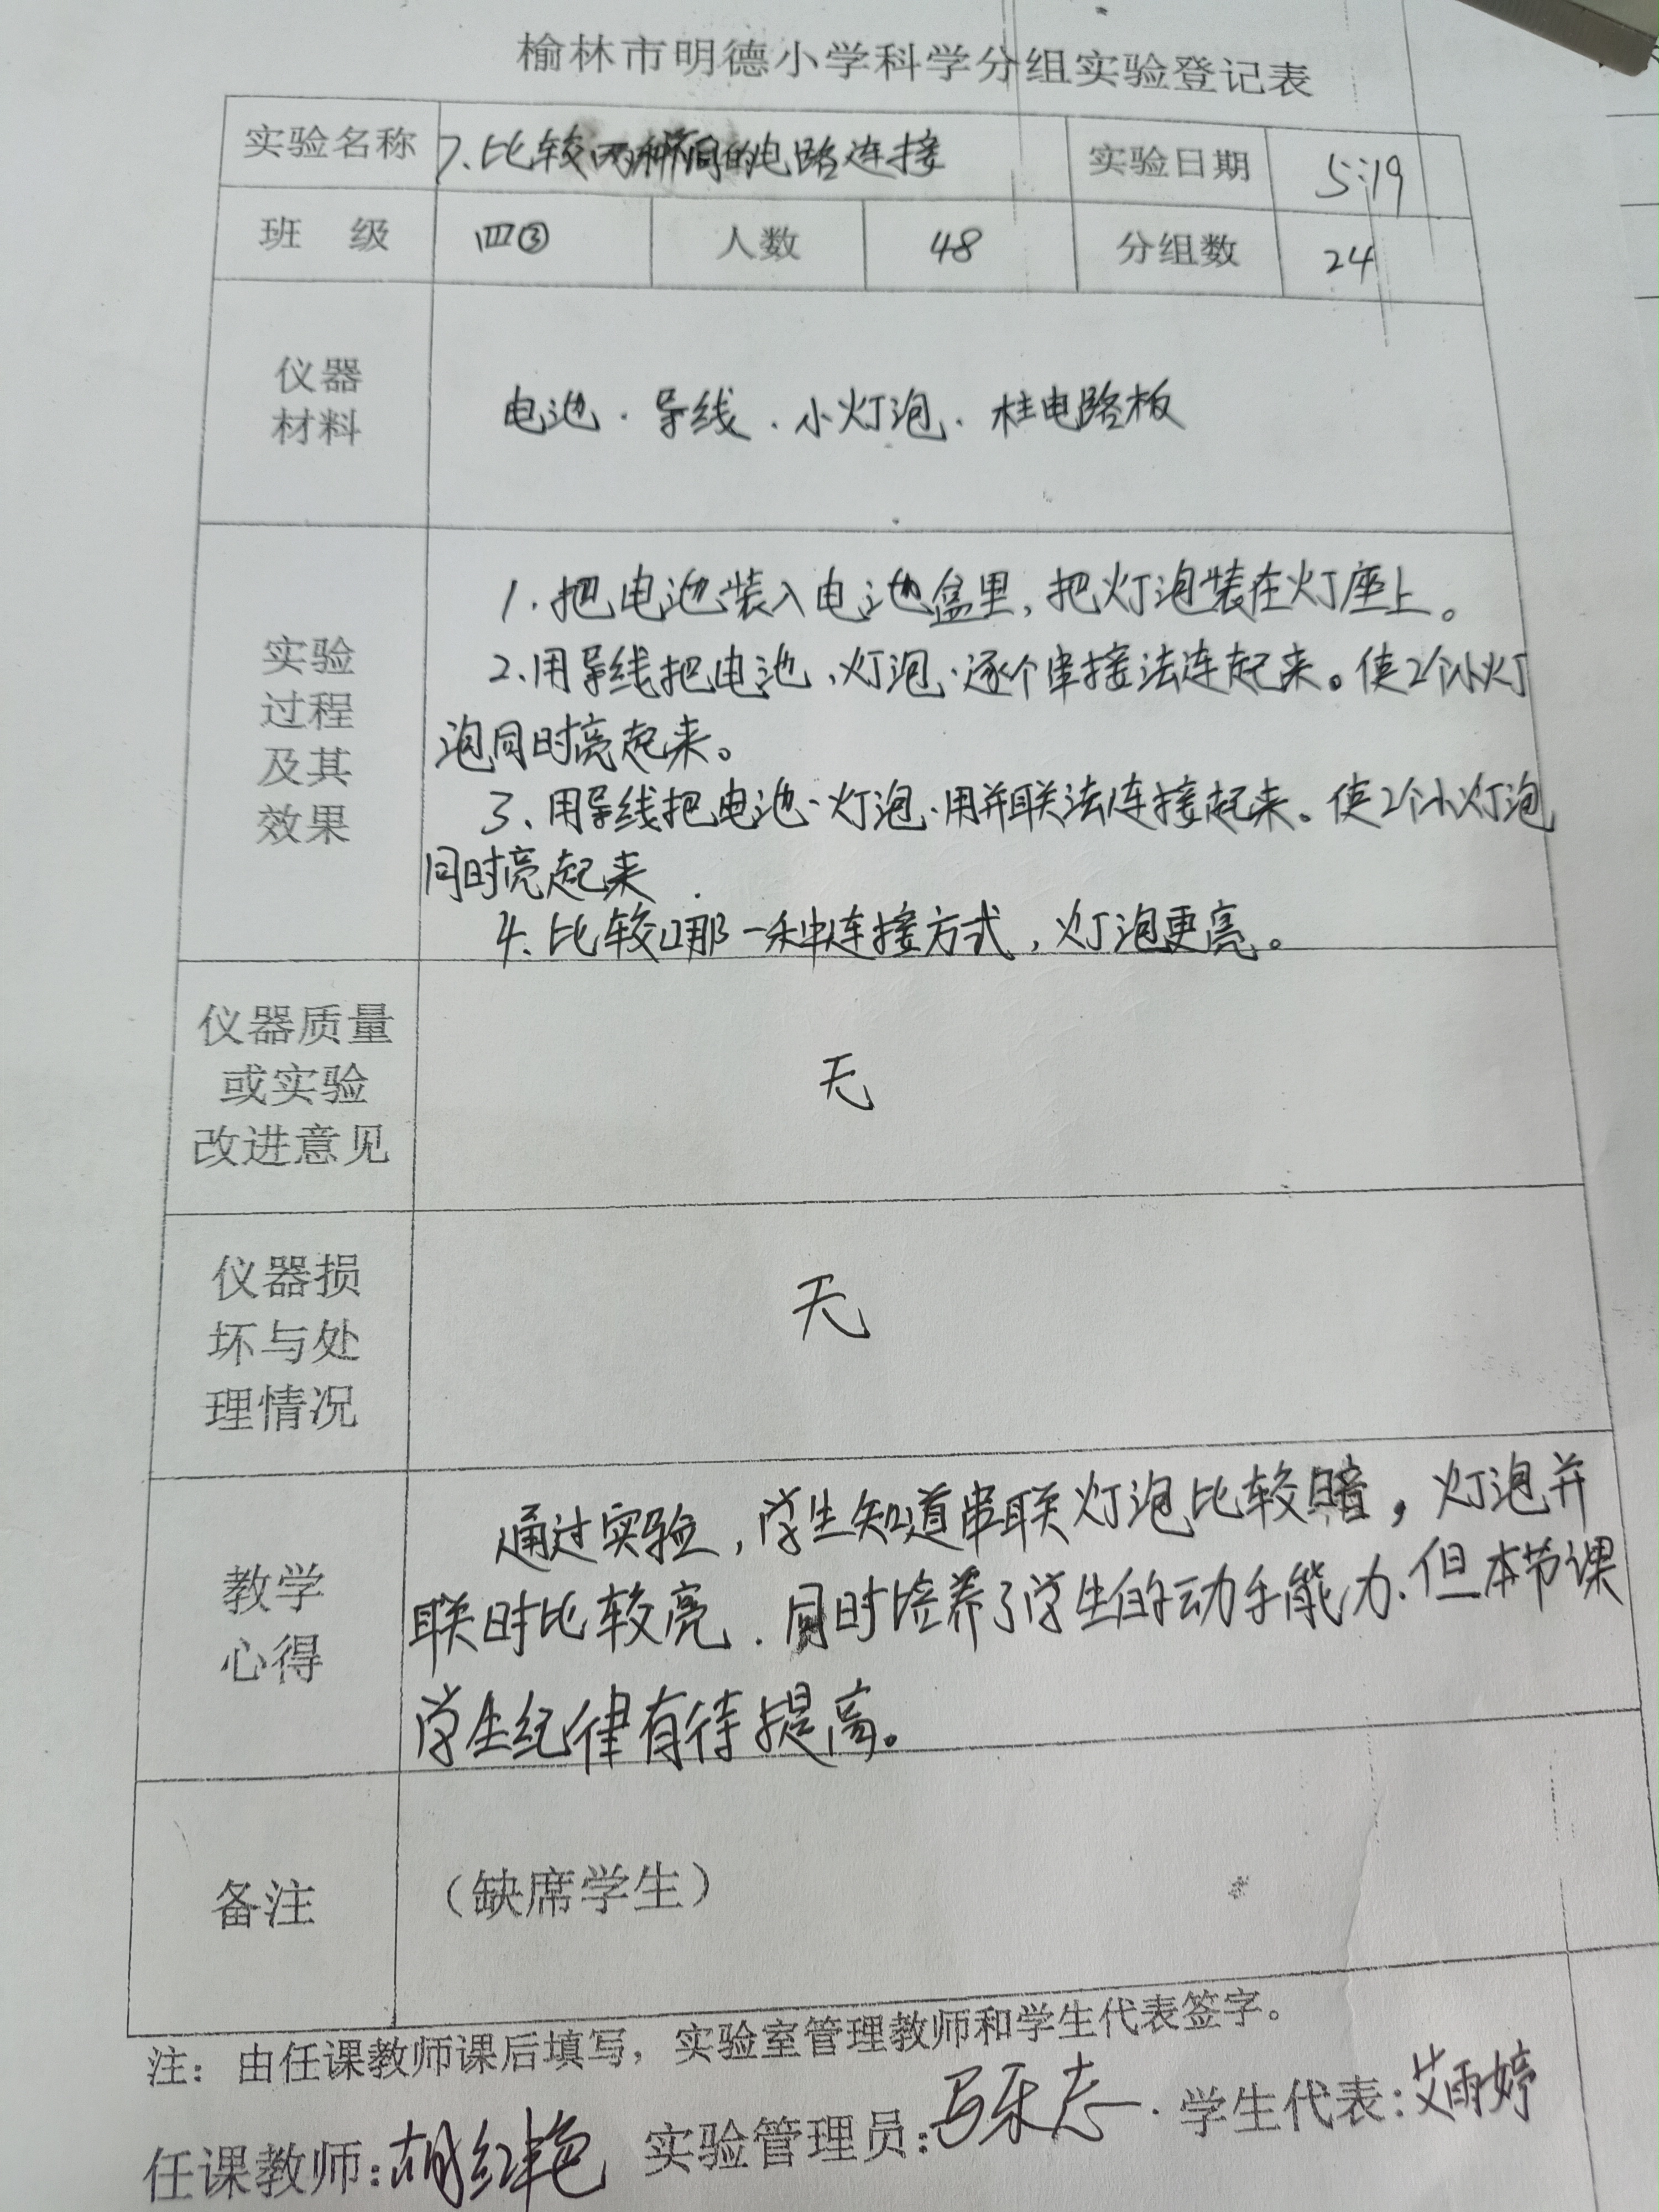 榆林市明德小学科学分组实验登记表
实验名称 7.比较两种不同的电路连接 实验日期 5:19
班 级 四③ 人数 48 分组数 24
仪器
材料
电池.导线.小灯泡.柱电路板
实验
过程
及其
效果
1.把电池装入电池盒里,把灯泡装在灯座上。
2.用导线把电池、灯泡.逐个串接法连起来。使2个小灯
泡同时亮起来。
3、用导线把电池、灯泡.用并联法连接起来。使2个小灯泡
同时亮起来.
4.比较哪一种连接方式,灯泡更亮。
仪器质量
或实验
改进意见
无
仪器损
坏与处
理情况
无
教学
心得
通过实验,学生知道串联灯泡比较暗,灯泡并
联时比较亮.同时培养了学生的动手能力.但本节课
学生纪律有待提高。
备注
(缺席学生)
注:由任课教师课后填写,实验室管理教师和学生代表签字。
任课教师:胡红艳 实验管理员: 学生代表:艾雨婷